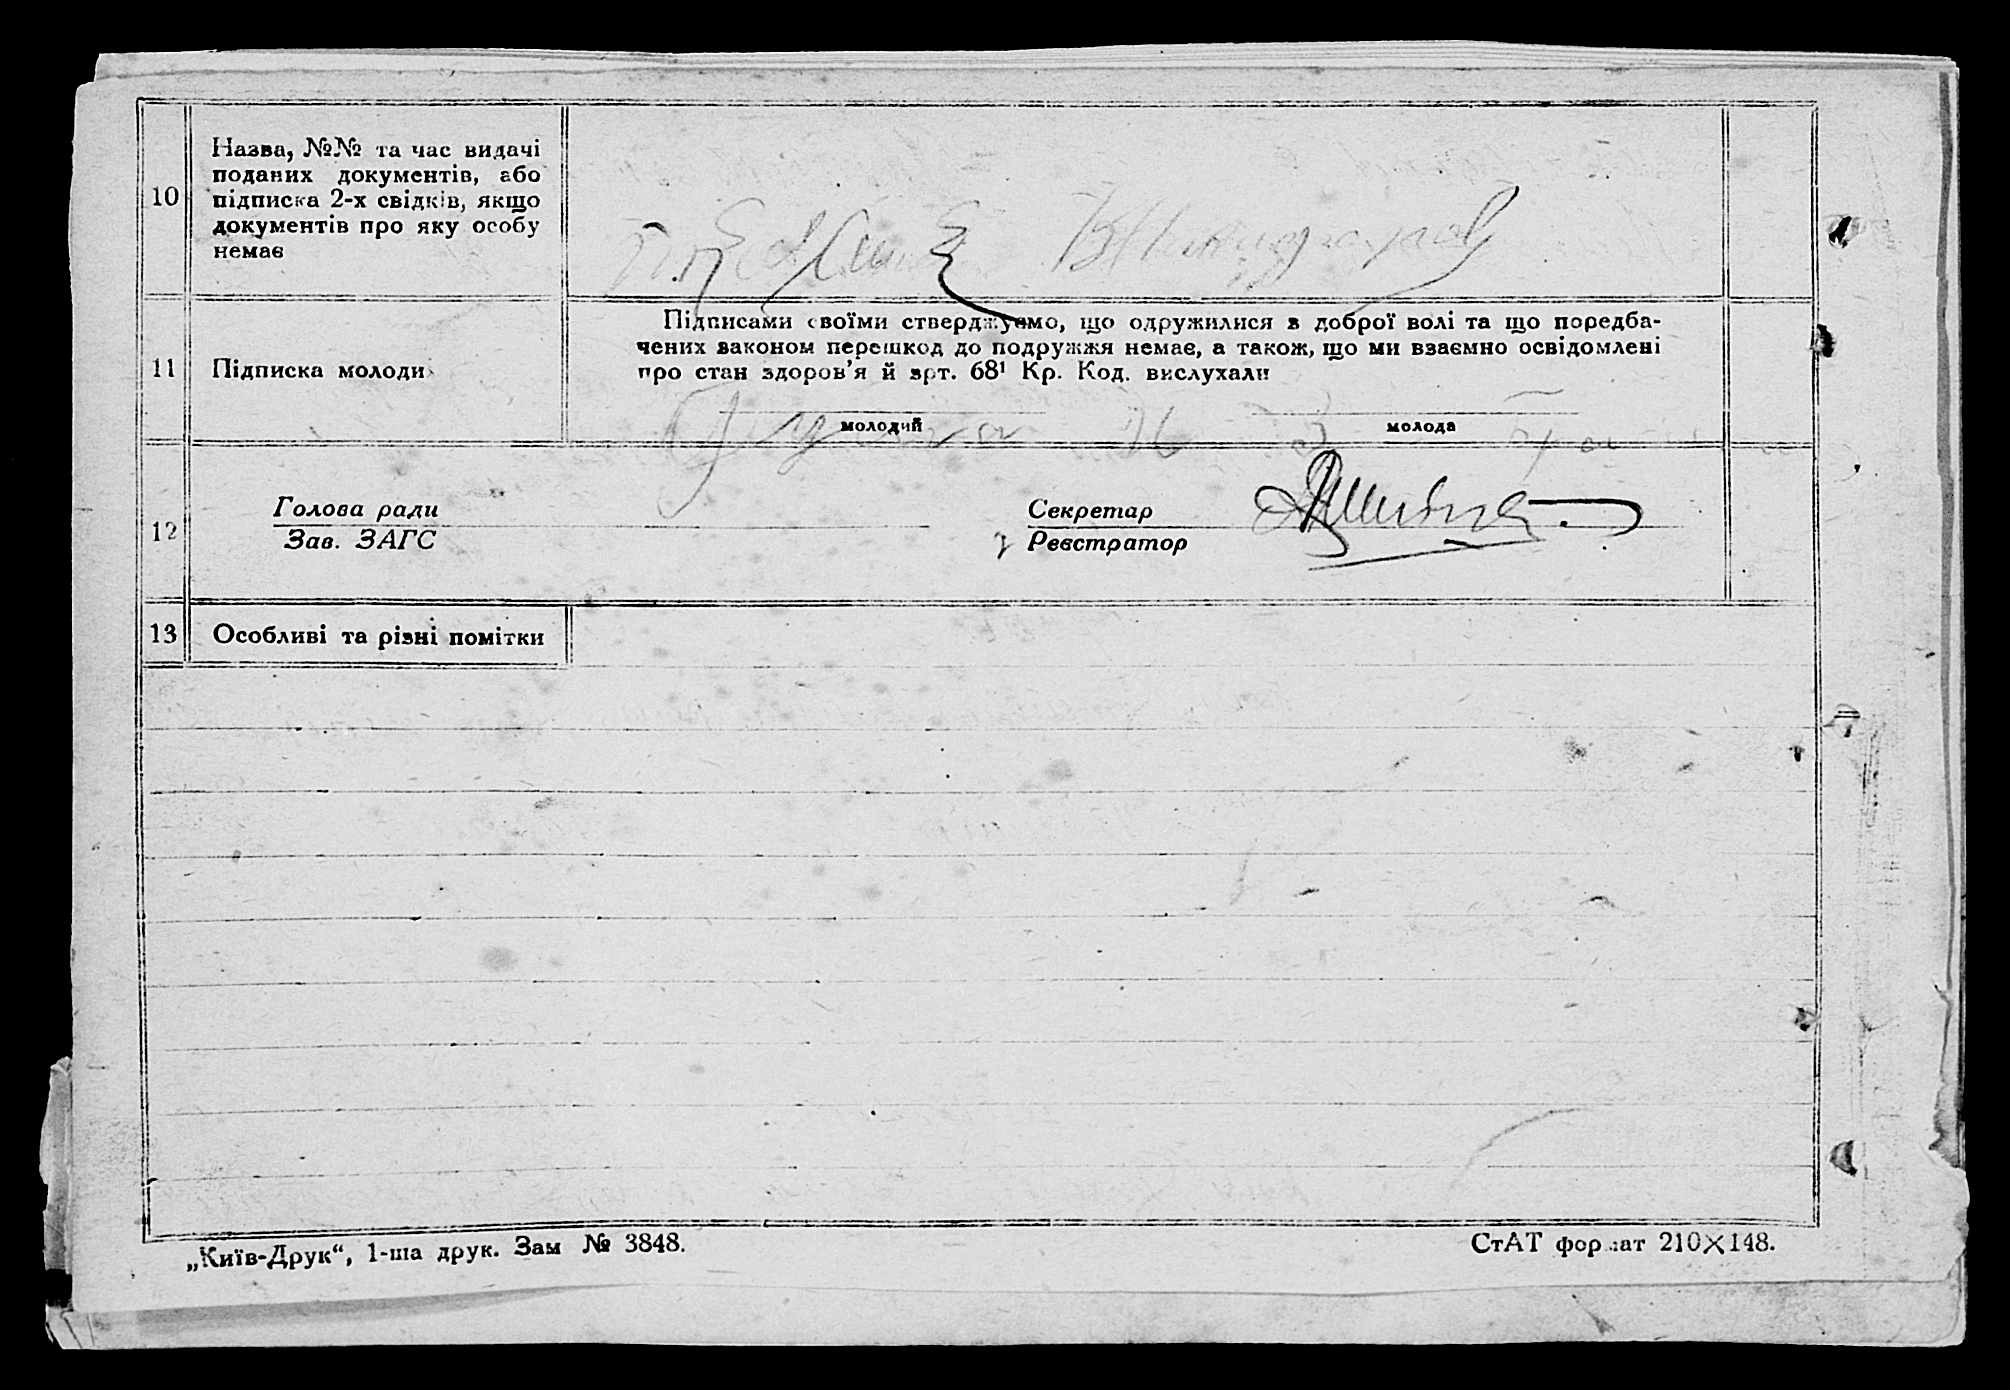 10
Назва, №№ та час видачі
поданих документів, або
підписка 2-х свідків, якщо
документів про яку особу
немає
11
Підписка молоди
Підписами своїми стверджуємо, що одружилися з доброї волі та що передба-
чених законом перешкод до подружжя немає, а також, що ми взаємно освідомлені
про стан здоров'я й арт. 68¹ Кр. Код. вислухали
молодий
молода
12
Голова ради
Зав. ЗАГС
Секретар
Реєстратор
13
Особливі та різні помітки
„Київ-Друк“, 1-ша друк. Зам № 3848.
СтАТ формат 210×148.